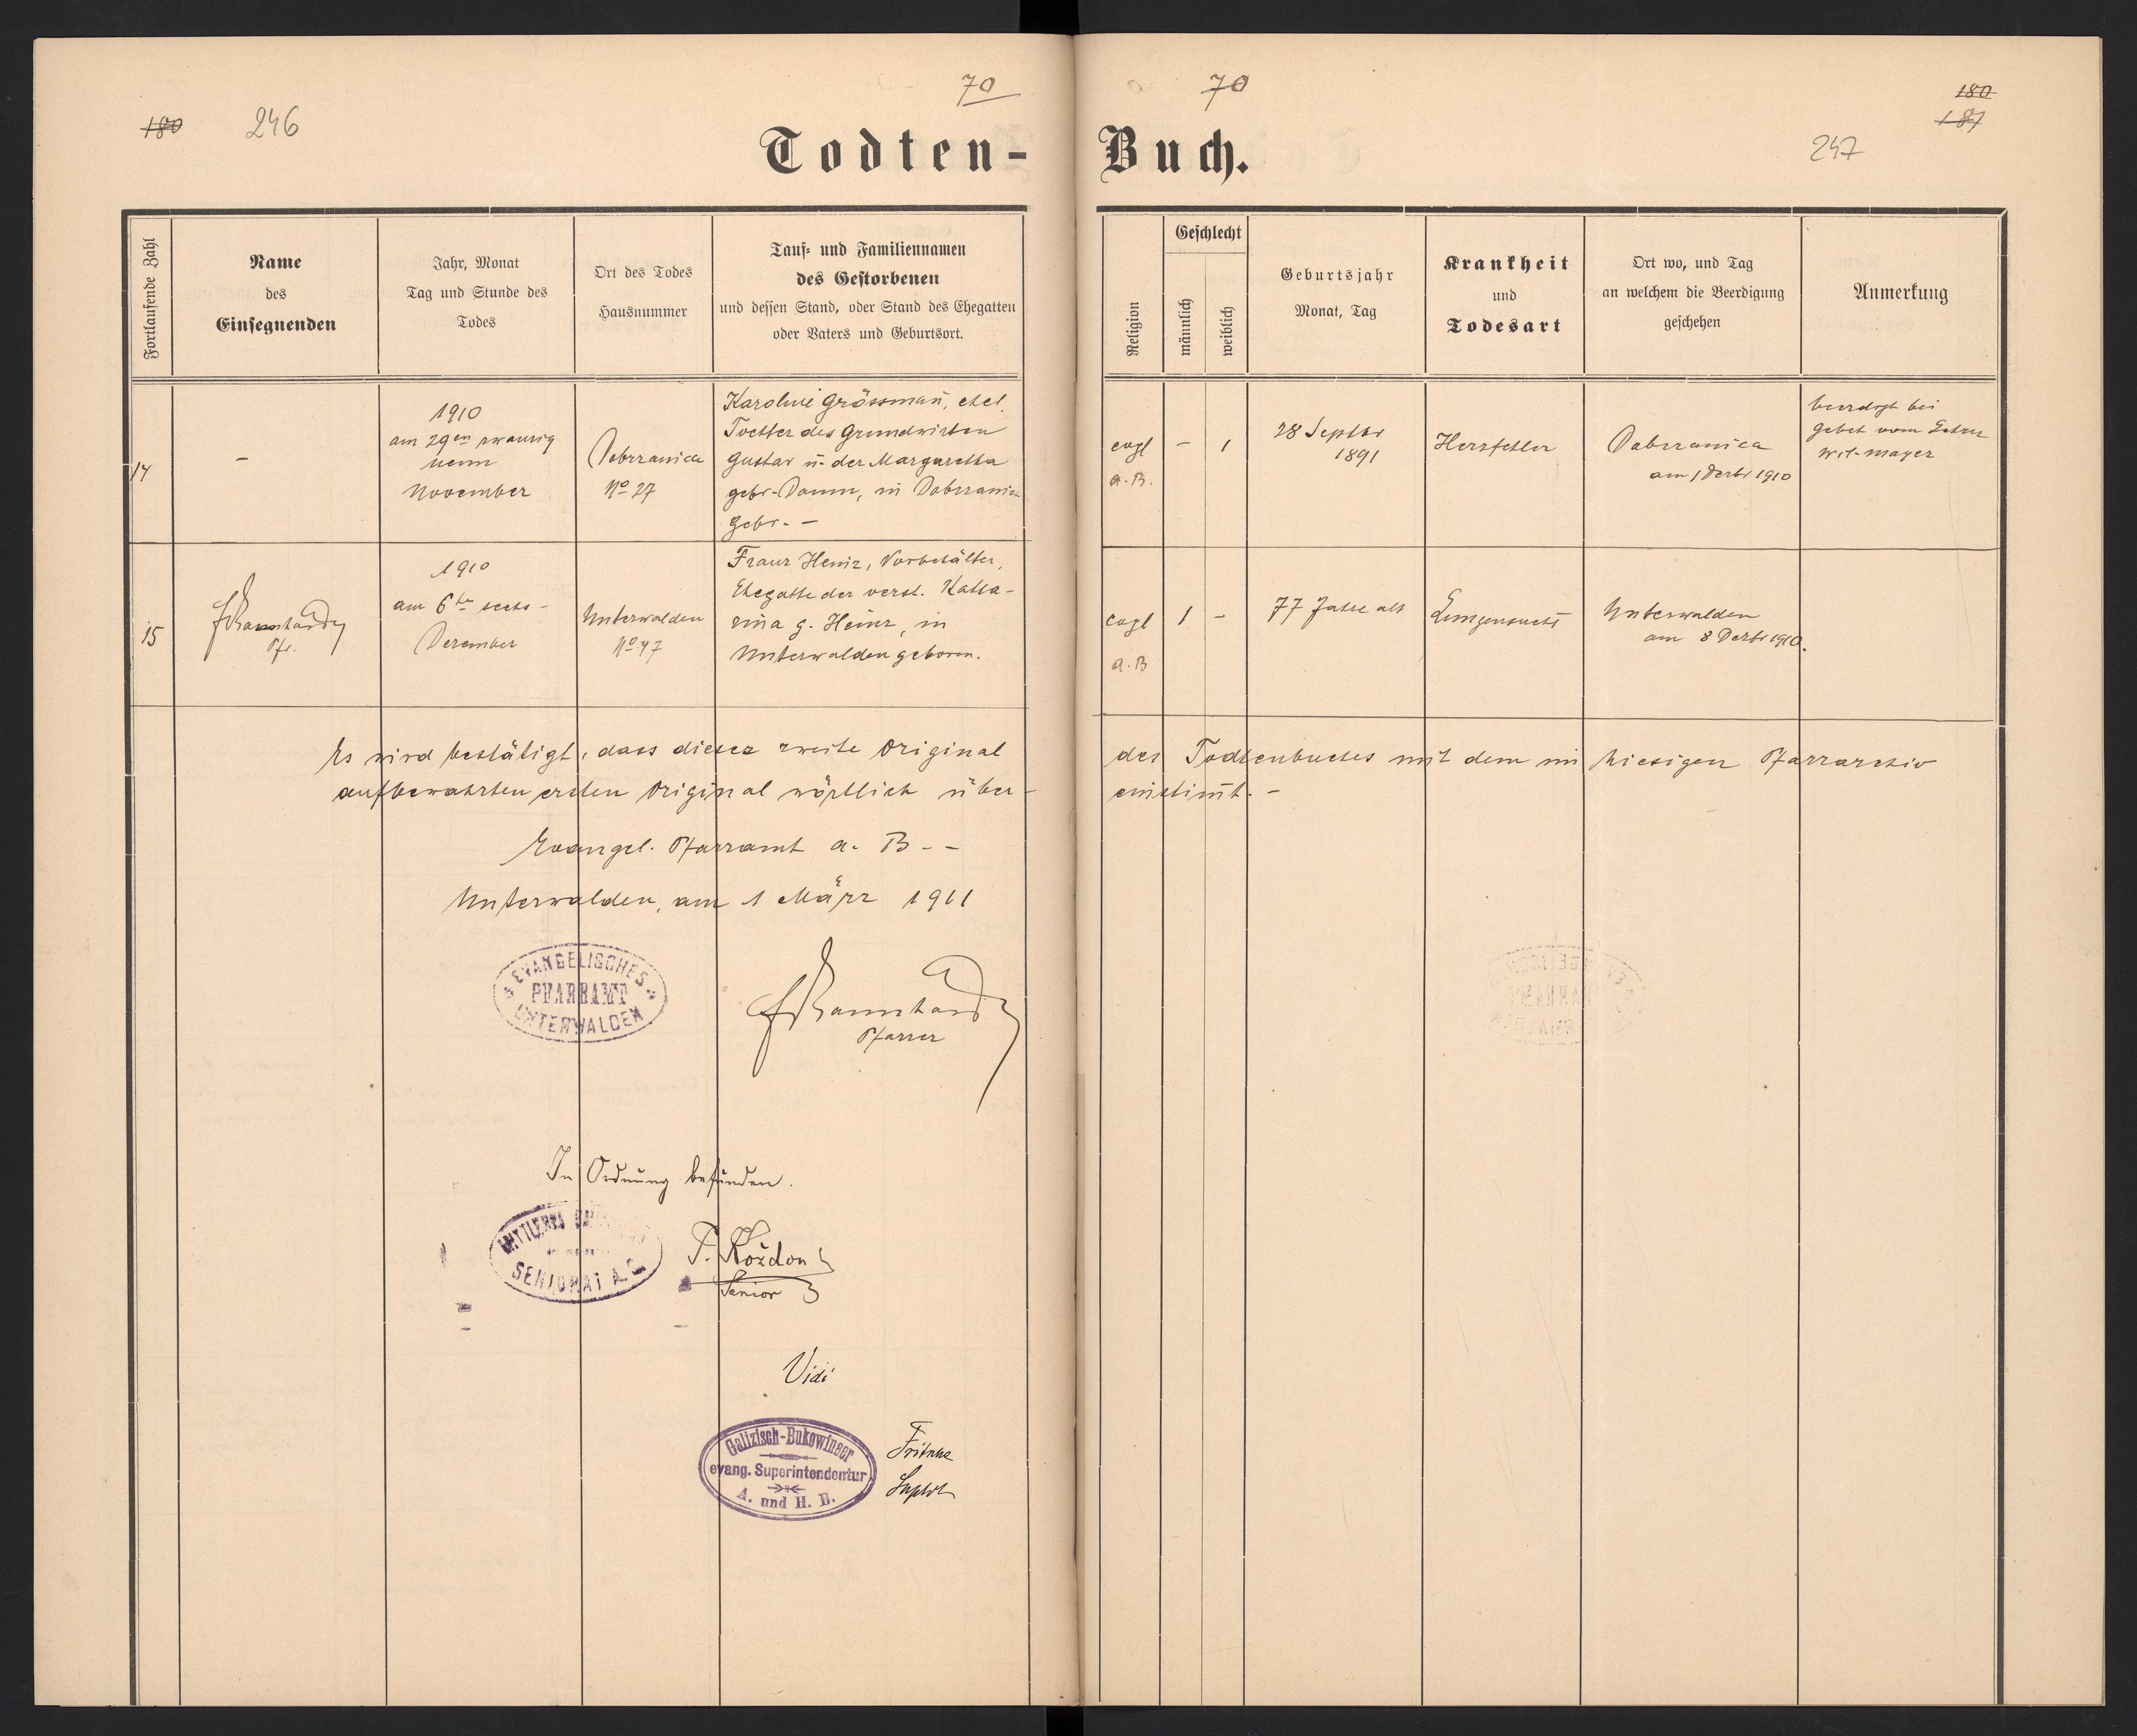 70
180 246
Todten-
Fortlaufende Zahl
Name
des
Einsegnenden
Jahr, Monat
Tag und Stunde des
Todes
Ort des Todes
Hausnummer
Tauf- und Familiennamen
des Gestorbenen
und dessen Stand, oder Stand des Ehegatten
oder Vaters und Geburtsort.
14
-
1910
am 29en zwanzig
neun
November
Dobrzanica
No 27
Karoline Grössmañ, ehel.
Tochter des Grundwirten
Gustav u. der Margaretha
gebr. Damm, in Dobrzanica
gebr. -
15
Pfr.
1910
am 6te sechs -
Dezember
Unterwalden
No 47
Franz Heinz, Vorbehälter,
Ehegatte der verst. Katha-
rina g. Heinz, in
Unterwalden geboren.
Es wird bestätigt, dass dieses zweite Original
aufbewahrten ersten Original wörtlich über-
Evangel. Pfarramt a. B - -
Unterwalden, am 1 März 1911
EVANGELISCHES
PFARRAMT
UNTERWALDEN
Pfarrer
In Ordnung befunden.
MITTLERES
SENIORAT A. B.
P. Koždon
Senior
Vidi
Galizisch-Bukowiner
evang. Superintendentur
A. und H. B.
70
180
181
247
Buch.
Religion
Geschlecht
männlich
weiblich
Geburtsjahr
Monat, Tag
Krankheit
und
Todesart
Ort wo, und Tag
an welchem die Beerdigung
geschehen
Anmerkung
evgl
a. B.
-
1
28 Septbr
1891
Herzfehler
Dobrzanica
am 1 Dezbr 1910
beerdigt bei
Gebet vom Lehrer
Wil. Mayer
evgl
a. B
1
-
77 Jahre alt
Lungensucht
Unterwalden
am 8 Dezbr 1910.
des Todtenbuches mit dem im hiesigen Pfarrarchiv
einstim̄t. -